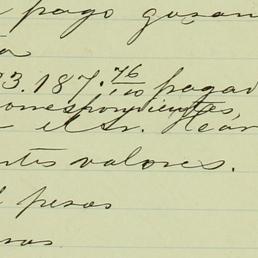 pago gozan
3.187.76/100 pagad
correspondientes,
el Sr. Hear
ntes valores.
pesos
sos